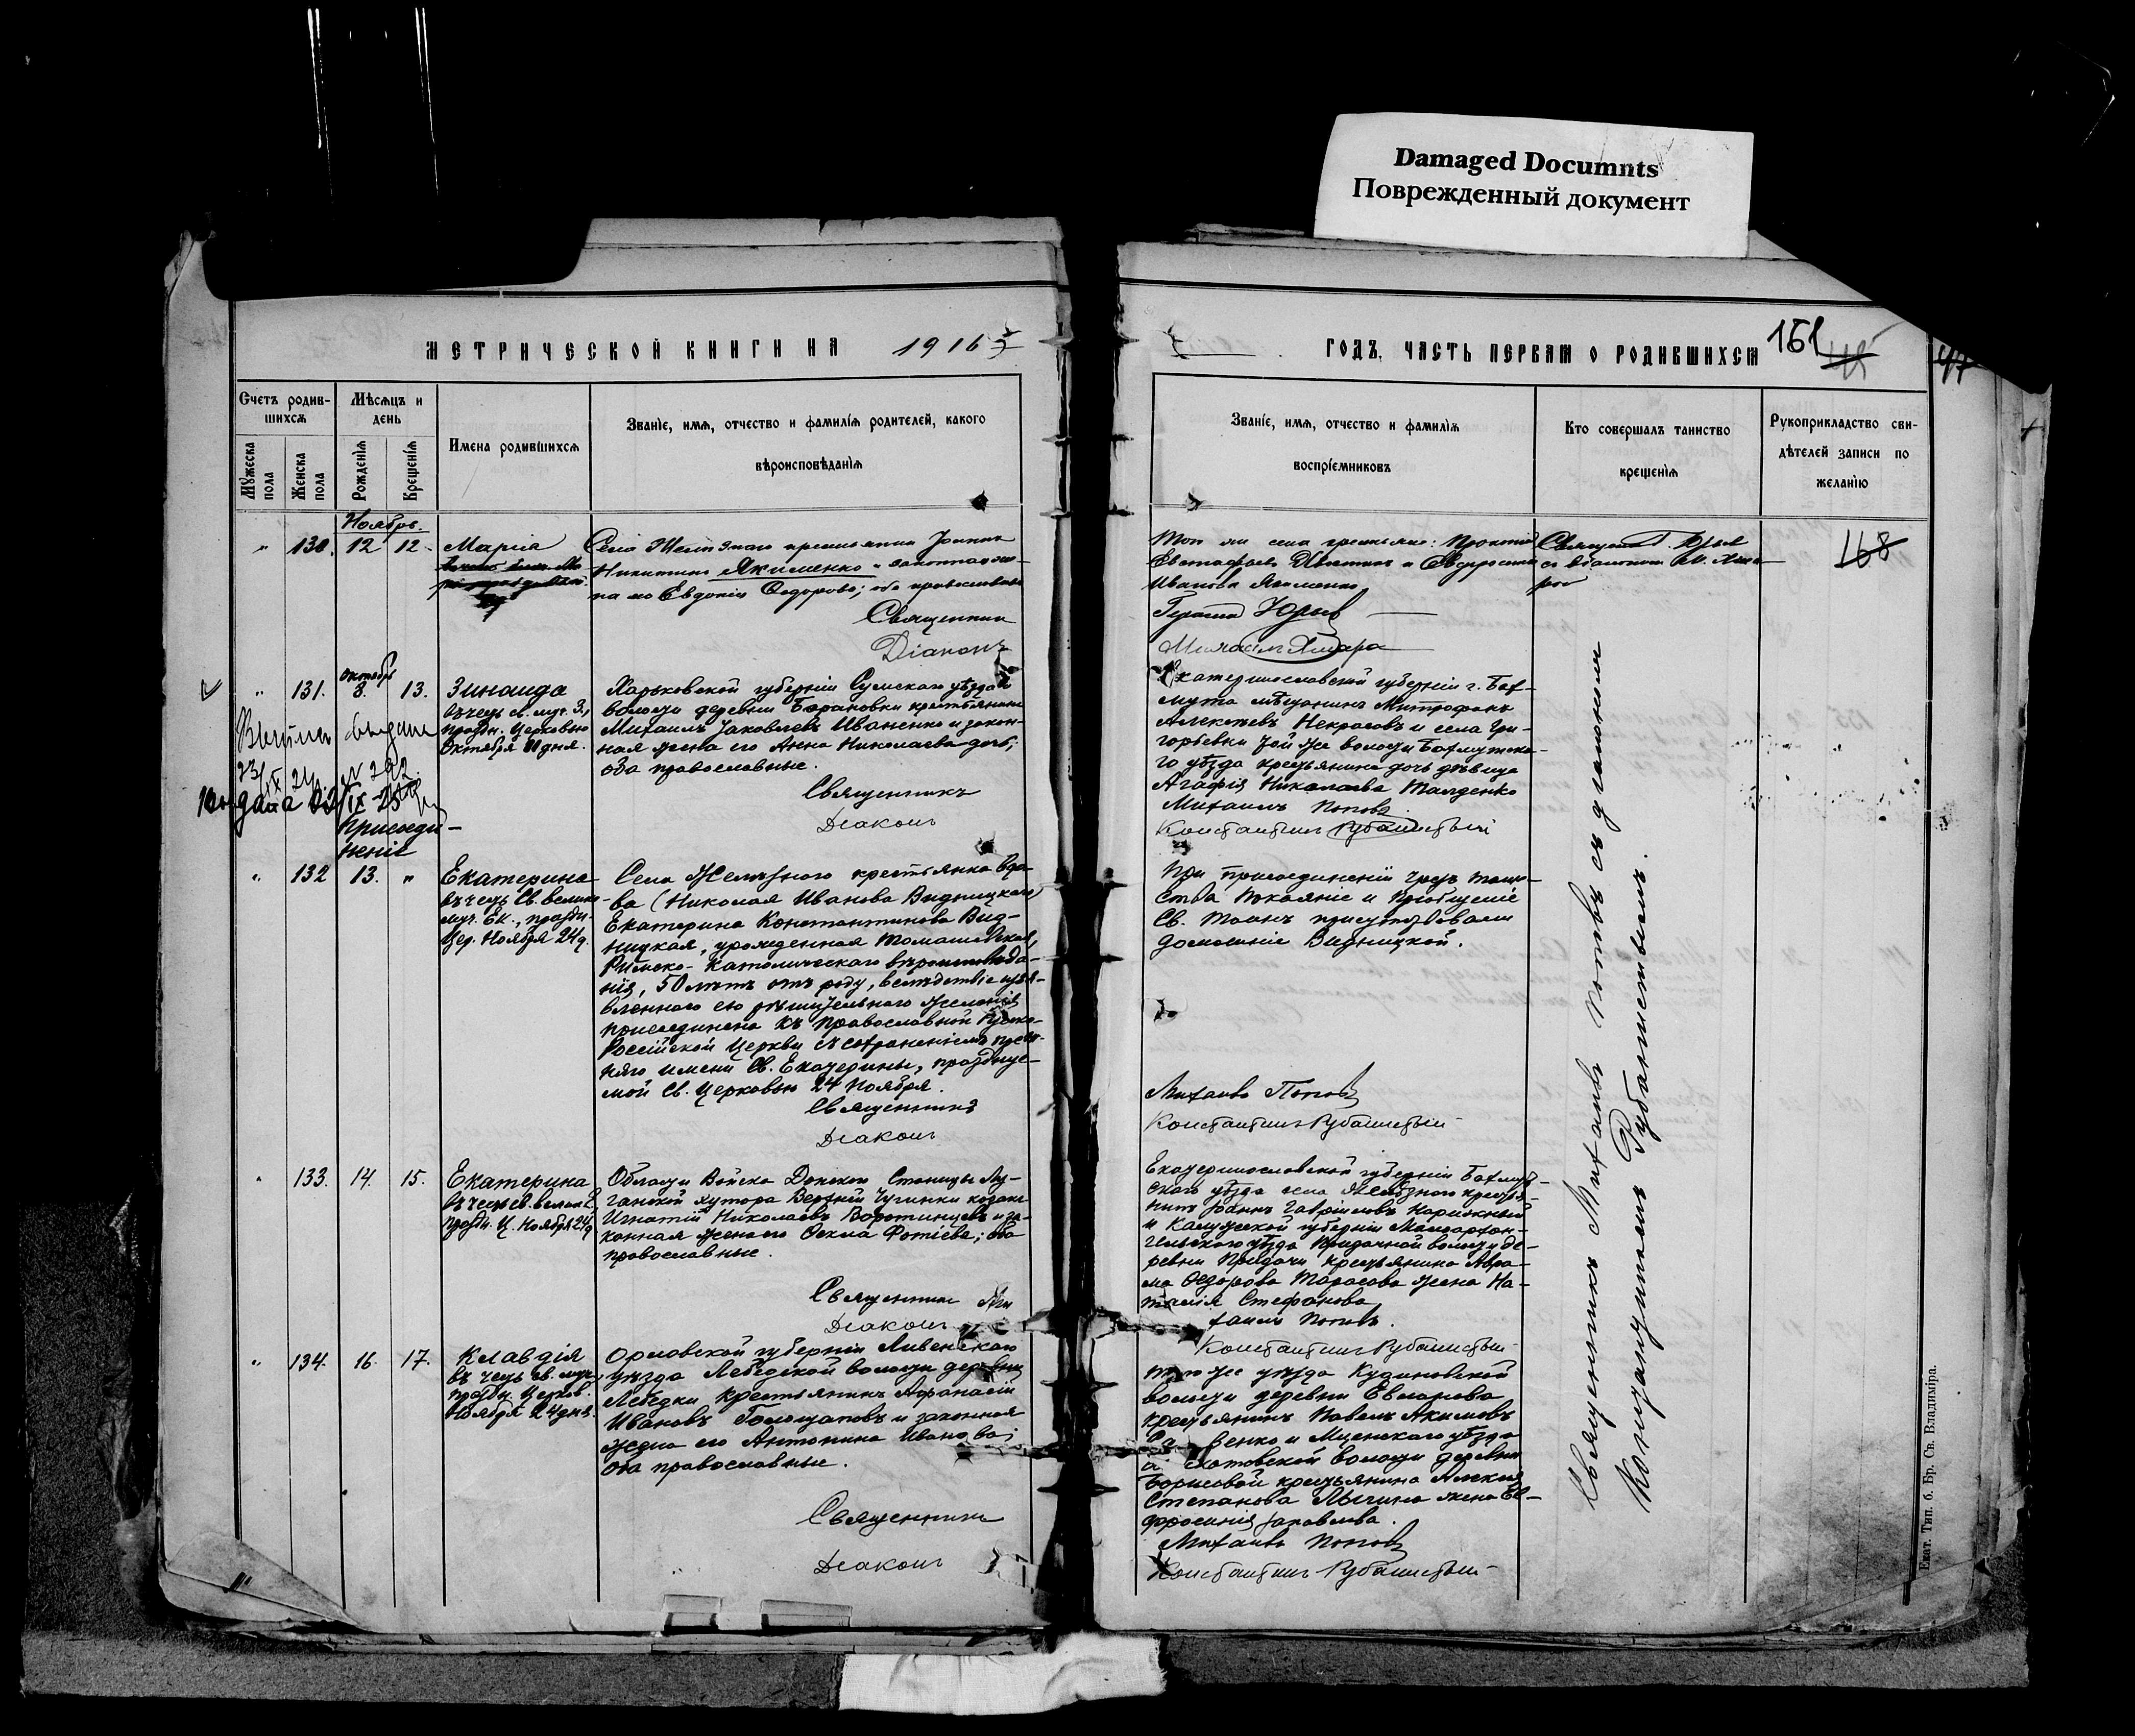 Damaged Documnts
Поврежденный документ
МЕТРИЧЕСКОЙ КНИГИ НА 1916
ГОДЪ, ЧАСТЬ ПЕРВАЯ О РОДИВШИХСЯ
151
47
Счетъ родив-
шихся
Мѣсяцъ и
день
Мужеска
пола
Женска
пола
Рожденія
Крещенія
Имена родившихся
Званіе, имя, отчество и фамилія родителей, какого
вѣроисповѣданія
Званіе, имя, отчество и фамилія
воспріемниковъ
Кто совершалъ таинство
крещенія
Рукоприкладство сви-
дѣтелей записи по
желанію
Ноябрь.
" 130. 12 12
Марія
Села Желѣзнаго крестьянинъ Іоаннъ
Никитинъ Якименко и законная же-
на его Евдокія Ѳедорова; оба православные
Священникъ
Діаконъ
Того же села крестьяне: Прокопій
Евстафьевъ и Евфросинія
Иванова Якименко
Герасимъ Юрьевъ
Священникъ Г. Юрьевъ
168
Октябрь
" 131. 8. 13.
Зинаида
въ честь св. муч. З.,
праздн. Церковью
Октября 11 дня.
Харьковской губерніи Сумскаго уѣзда
волости деревни Барановки крестьянинъ
Михаилъ Іаковлевъ Иваненко и закон-
ная жена его Анна Николаева дочь;
оба православные.
Священникъ
Діаконъ
Екатеринославской губерніи г. Бах-
мута мѣщанинъ Митрофанъ
Алексѣевъ Некрасовъ и села Гри-
горьевки той же волости Бахмутска-
го уѣзда крестьянина дочь дѣвица
Агафія Николаева Талденко
Михаилъ Поповъ
Константинъ Рубанистый
№ 292
Присоеди-
неніе
" 132 13. "
Екатерина
въ честь Св. велико-
муч. Ек., праздн.
Цер. Ноября 24 д.
Села Желѣзного крестьянка вдо-
ва (Николая Иванова Видницкаго)
Екатерина Константинова Вид-
ницкая, урожденная Томашевская,
Римско-католическаго вѣроисповѣда-
нія, 50 лѣтъ отъ роду, вслѣдствіе изъя-
вленного ею рѣшительнаго желанія
присоединена къ православной Греко-
Россійской Церкви съ сохраненіемъ преж-
няго имени Св. Екатерины, празднуе-
мой Св. Церковью 24 Ноября.
Священникъ
Діаконъ
При присоединеніи чрезъ таин-
ства Покаяніе и Пріобщеніе
Св. Таинъ присутствовали
домашніе Видницкой.
Михаилъ Поповъ
Константинъ Рубанистый
" 133. 14. 15.
Екатерина
въ честь св. велик. Е.
праздн. Ц. Ноября 24 д.
Области Войска Донского Станицы Лу-
ганской хутора Верхней Чугинки козакъ
Игнатій Николаевъ Воротинцевъ и за-
конная жена его Ѳекла Фотіева; оба
православные.
Священникъ Ми
Діаконъ
Екатеринославской губерніи Бахмут-
скаго уѣзда села Желѣзнаго крестья-
нинъ Іоаннъ Гавріиловъ Нарижный
и Калужской губерніи Малоархан-
гельскаго уѣзда Придачной волости де-
ревни Придачи крестьянина Авра-
ма Ѳедорова Тарасова жена На-
талія Стефанова
хаилъ Поповъ.
Константинъ Рубанистый
" 134. 16. 17.
Клавдія
въ честь св. муч.,
праздн. Церков.
Ноября 24 дня.
Орловской губерніи Ливенскаго
уѣзда Лебедской волости деревни
Лебедки крестьянинъ Афанасій
Ивановъ Голощаповъ и законная
жена его Антонина Иванова;
оба православные.
Священникъ
Діаконъ
того же уѣзда
волости деревни Евланова
крестьянинъ Павелъ Акимовъ
венко и Мценскаго уѣзда
волости деревни
Борисовой крестьянина Алексія
Степанова Лычина жена Ев-
фросинія Іаковлева.
Михаилъ Поповъ
Константинъ Рубанистый
Священникъ Михаилъ Поповъ съ діакономъ
Константиномъ Рубанистымъ.
Екат. Тип. б. Бр. Св. Владиміра.